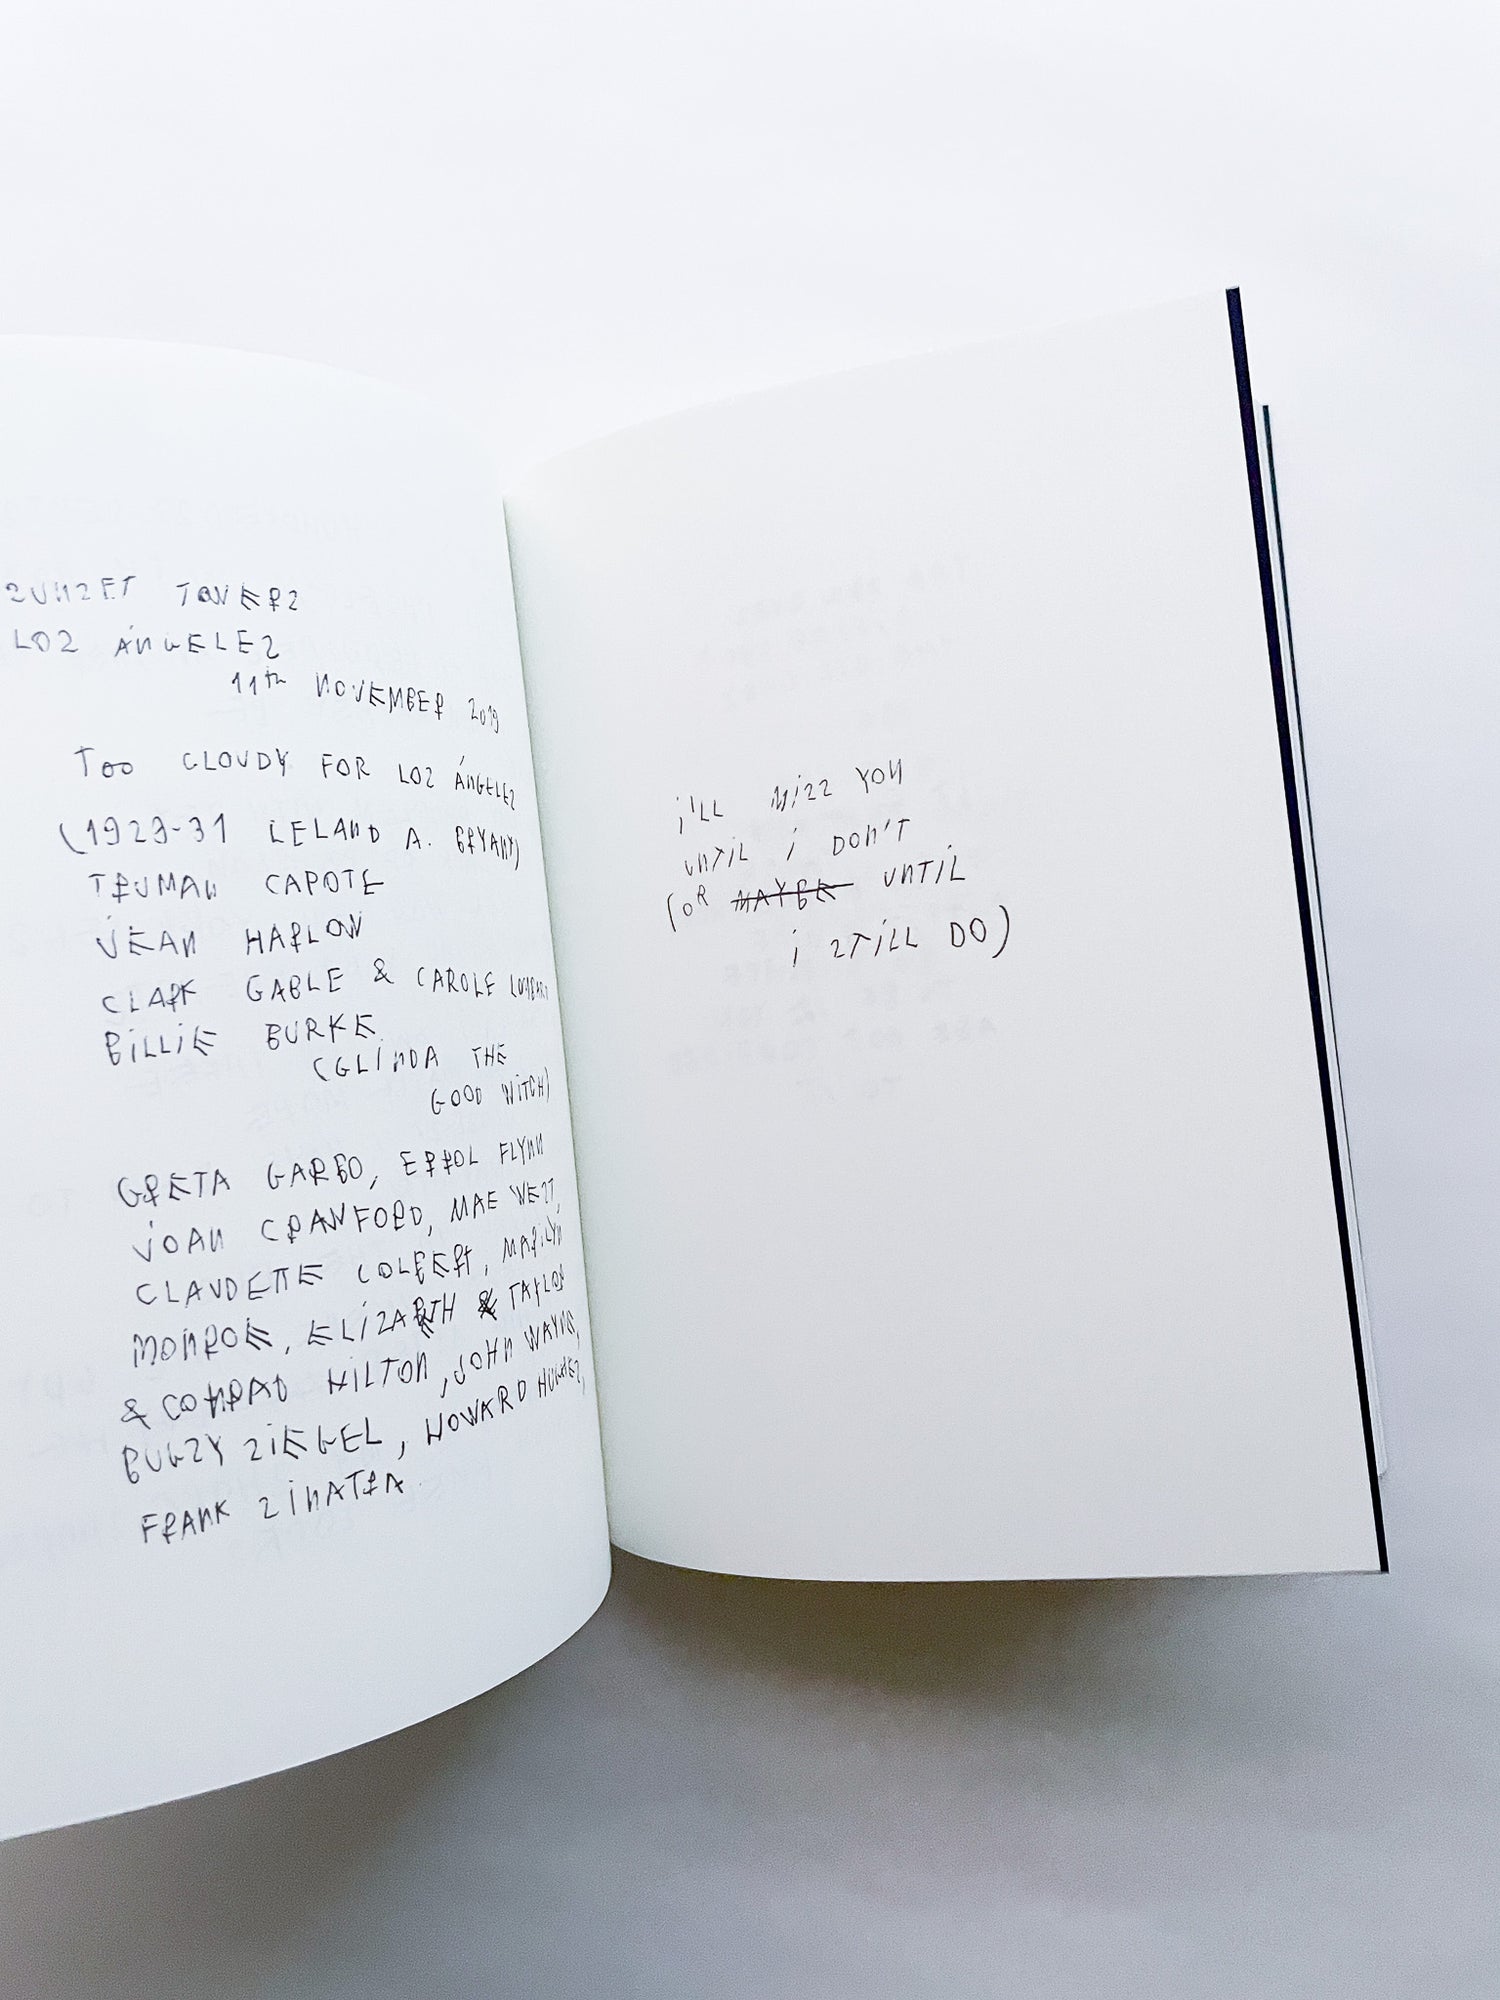 SUNSET TOWERS
LOS ÁNGELES
11th NOVEMBER 2019
TOO CLOUDY FOR LOS ÁNGELES
(1929-31 LELAND A. BRYANT)
TRUMAN CAPOTE
JEAN HARLOW
CLARK GABLE & CAROLE LOMBARD
BILLIE BURKE
(GLINDA THE
GOOD WITCH)
GRETA GARBO, ERROL FLYNN
JOAN CRAWFORD, MAE WEST,
CLAUDETTE COLBERT, MARILYN
MONROE, ELIZABETH TAYLOR
& CONRAD HILTON, JOHN WAYNE,
BUGSY SIEGEL, HOWARD HUGHES,
FRANK SINATRA.
I'LL MISS YOU
UNTIL I DON'T
(OR MAYBE UNTIL
I STILL DO)